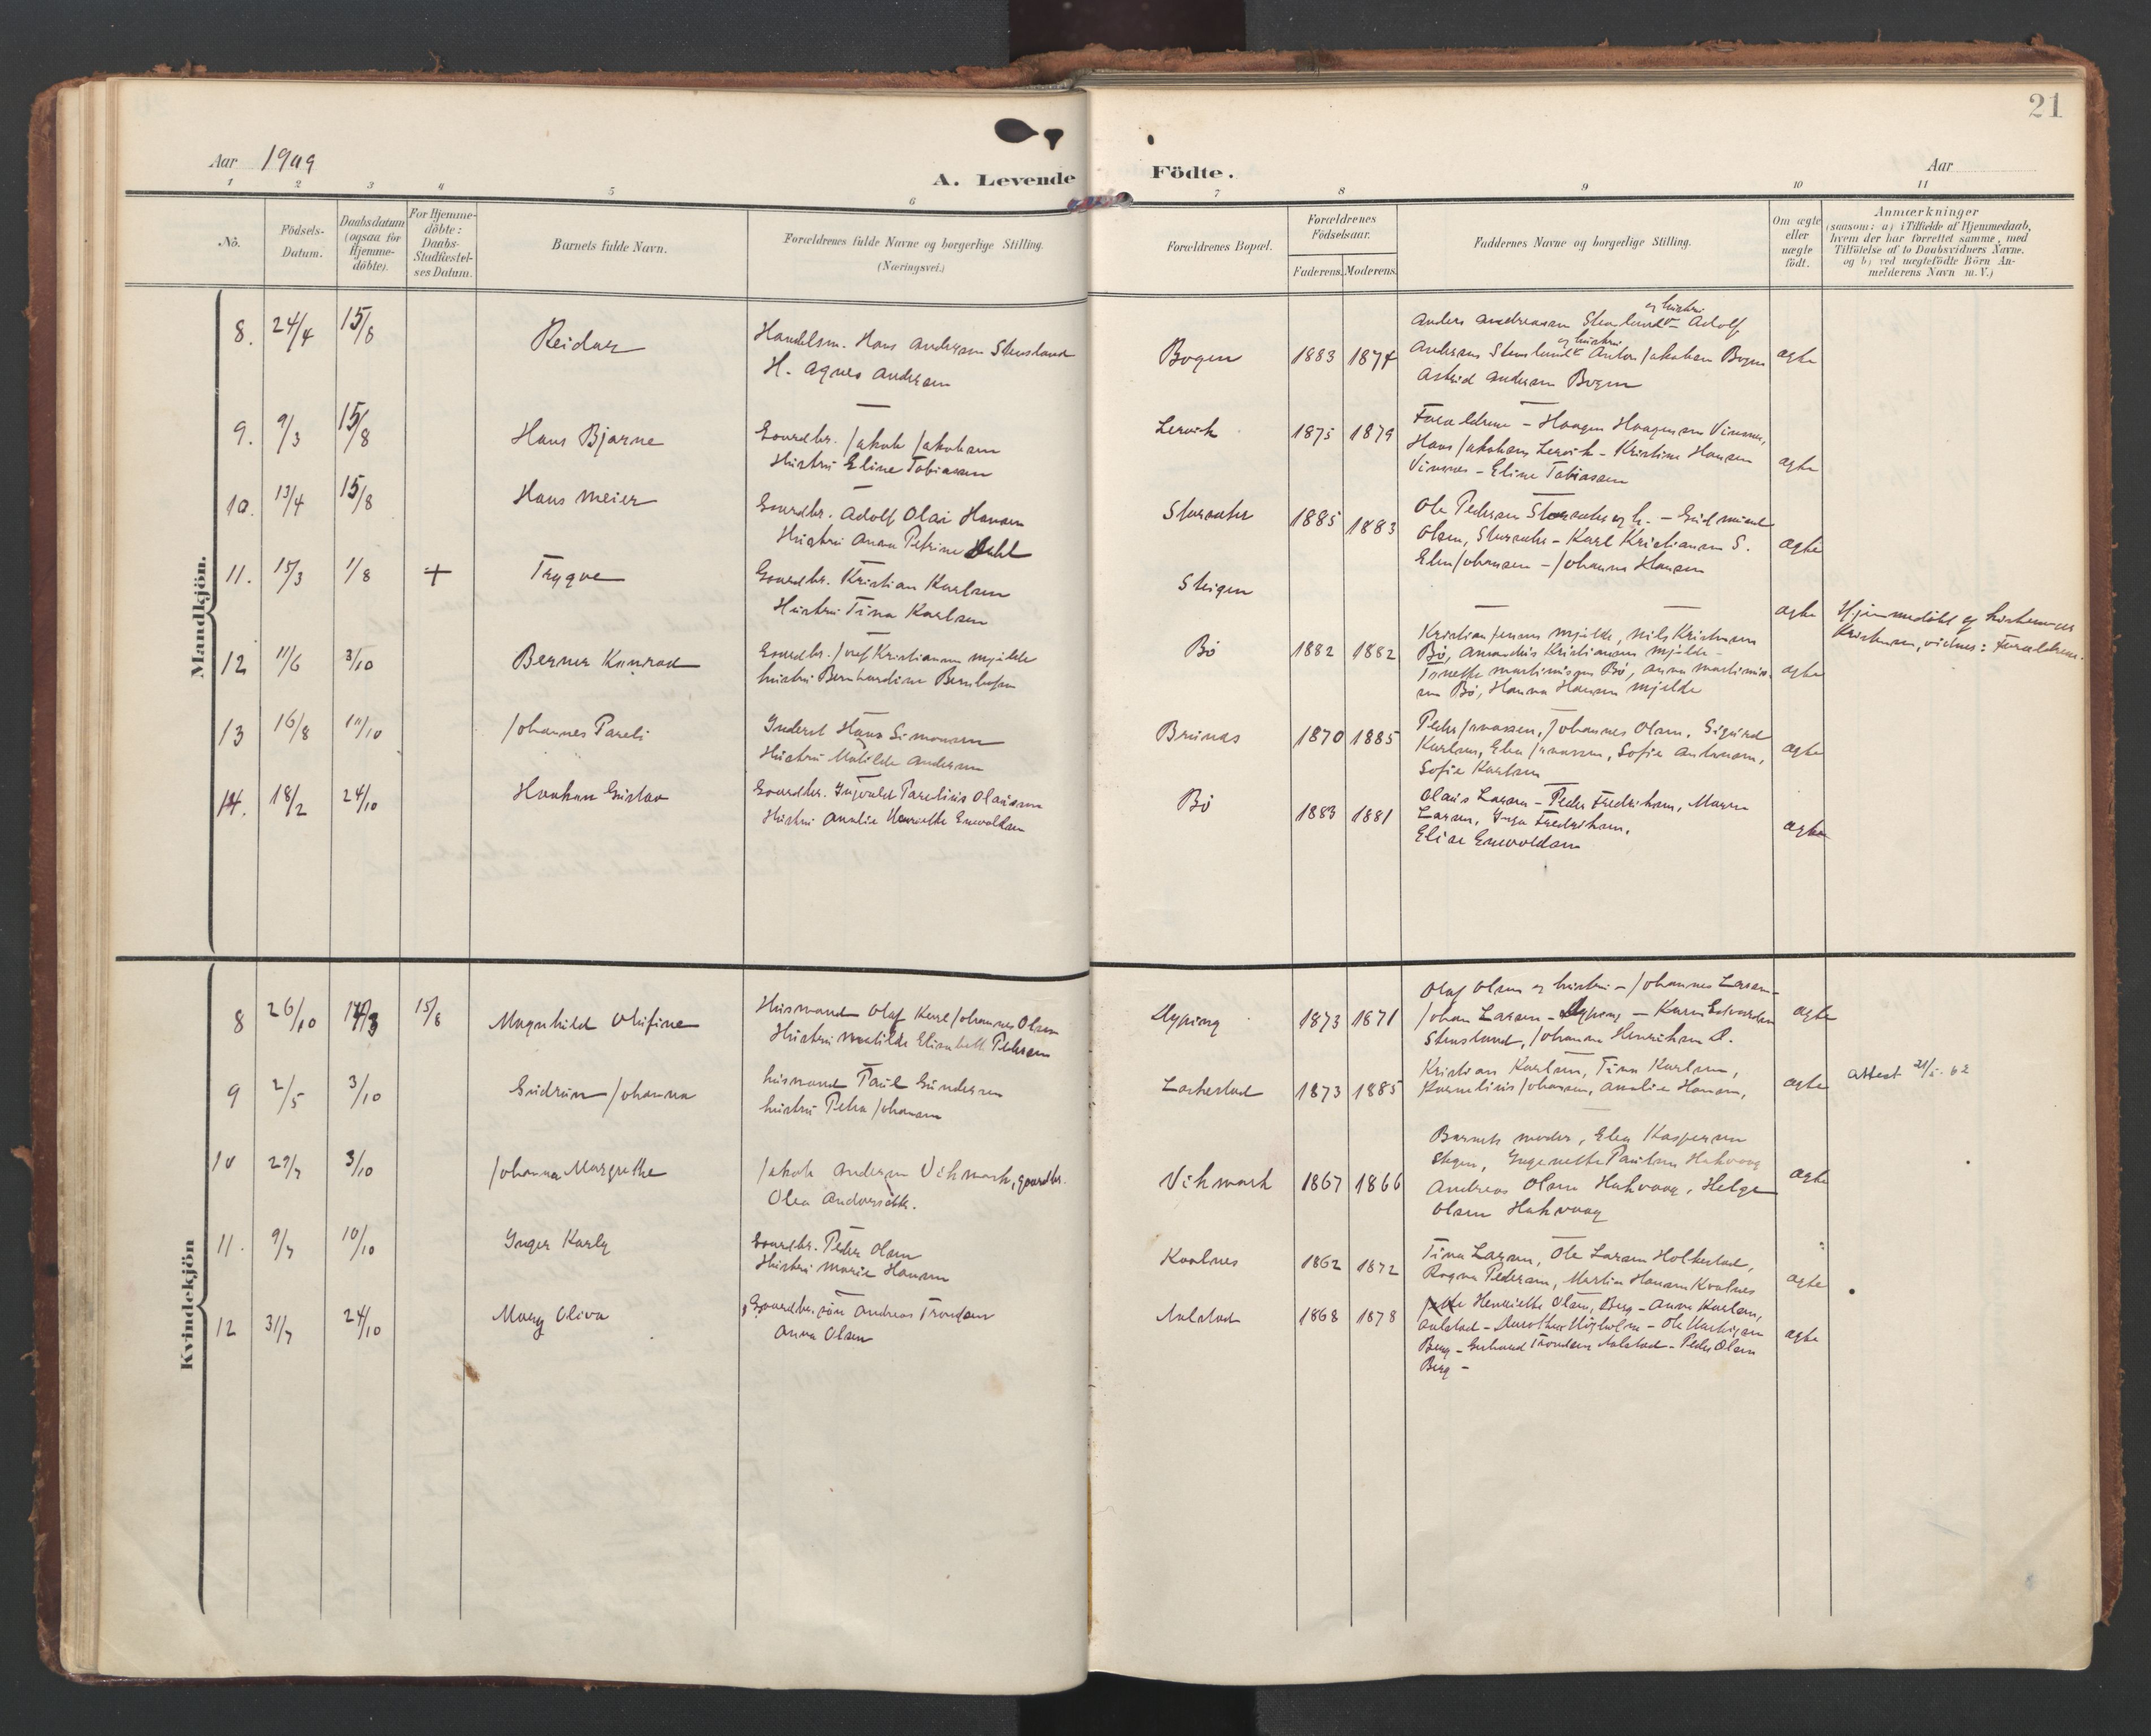 21
Aar 1909
A. Levende Födte.
Aar
1 2 3 4 5 6 7 8 9 10 11
No.
Födsels-Datum.
Daabsdatum (ogsaa for Hjemme-döbte).
For Hjemme-döbte: Daabs-Stadfæstel-ses Datum.
Barnets fulde Navn.
Forældrenes fulde Navne og borgerlige Stilling. (Næringsvei.)
Forældrenes Bopæl.
Forældrenes Födselsaar.
Faderens. Moderens.
Faddernes Navne og borgerlige Stilling.
Om ægte eller uægte födt.
Anmærkninger
(saasom: a) i Tilfælde af Hjemmedaab,
hvem der har forrettet samme, med
Tilföielse af to Daabsvidners Navne.
og b) ved uægtefödte Börn An-
melderens Navn m. V.)
Mandkjön.
8. 24/4 15/8 Reidar
Handelsm. Hans Andersen Stensland
H. Agnes Andersen
Bogen 1883 1874
og hustru
Anders Andreasen Stenslund - Adolf
og hustru
Andersen Stenslund - Anton Jakobsen Bogen
Astrid Andersen Bogen
ægte
9. 9/3 15/8 Hans Bjarne
Gaardbr. Jakob Jakobsen
Hustru Eline Tobiassen
Lervik 1875 1879
Forældrene - Haagen Haagensen Vinnes,
Hans Jakobsen Lervik - Kristine Hansen
Vinnes - Eline Tobiassen
ægte
10. 13/4 15/8 Hans Meier
Gaardbr. Adolf Olai Hansen
Hustru Anna Petrine Dahl
1885 1883
Ole Pedersen
Olsen, - Karl Kristiansen S.
Elen Johansen - Johanna Hansen
ægte
11. 15/3 1/8 + Trygve
Gaardbr. Kristian Karlsen
Hustru Tina Karlsen
Steigen
ægte
Hjemmedöbt af
Kristensen, vidner: Forældrene.
12 11/6 3/10 Berner Konrad
Gaardbr. Kristiansen Mjelde
hustru Bernhardine
Bö 1882 1882
Kristian Jensen Mjelde, Nils Kristensen
Bö, Amandus Kristiansen Mjelde -
Martinussen Bö, Anna Martinus-
sen Bö, Hanna Hansen Mjelde
ægte
13 16/8 10/10 Johannes Pareli
Inderst Hans Simonsen
Hustru Matilde Andersen
Brunes 1870 1885
Peder Ivarsen, Johannes Olsen, Sigurd
Karlsen, Elea Ivarsen, Sofie Antonsen,
Sofie Karlsen
ægte
14. 18/2 24/10 Haakon Gustav
Gaardbr. Ingvald Parelius Olaisen
Hustru Analie Henriette Enevoldsen
Bö 1883 1881
Olaus Larsen - Peder Fredriksen, Maren
Larsen, Inga Fredriksen,
Elise Enevoldsen
ægte
Kvindekjön
8 26/10 14/3 15/8 Magnhild Olufine
Husmand Olaf Karl Johannes Olsen
Hustru Matilde Elisabeth Pedersen
Dyping 1873 1871
Olaf Olsen og hustru - Johannes Larsen -
Johan Larsen - Dyping - Karen Edvardsen
Stensland, Johanna Henriksen D.
ægte
9 2/5 3/10 Gudrun Johanna
husmand Paul Gundersen
hustru Petra Johansen
Laskestad 1873 1885
Kristian Karlsen, Tina Karlsen,
Kornelius Johansen, Analie Hansen,
ægte
Attest 21/5. 62
10 29/7 3/10 Johanna Margrethe
Jakob Andersen Vikmark, gaardbr.
Olea Andersdtr.
Vikmark 1867 1866
Barnets moder, Elea Kaspersen
Skgen, Ingenette Paulsen Hakvaag
Andreas Olsen Hakvaag, Helge
Olsen Hakvaag
ægte
11. 9/7 10/10 Inger Karly
Gaardbr. Peder Olsen
Hustru Marie Hansen
Kvalnes 1862 1872
Tina Larsen, Ole Larsen Holkestad,
Ragna Pedersen, Martin Hansen Kvalnes
ægte
12 31/7 24/10 Mary Oliva
Gaardbr. sön Andreas Trondsen
Anna Olsen
Aalstad 1868 1878
Henriette Olsen, Berg - Anna Karlsen,
Aalstad - - Ole
Berg - Gerhard Trondsen Aalstad - Peder Olsen
Berg -
ægte